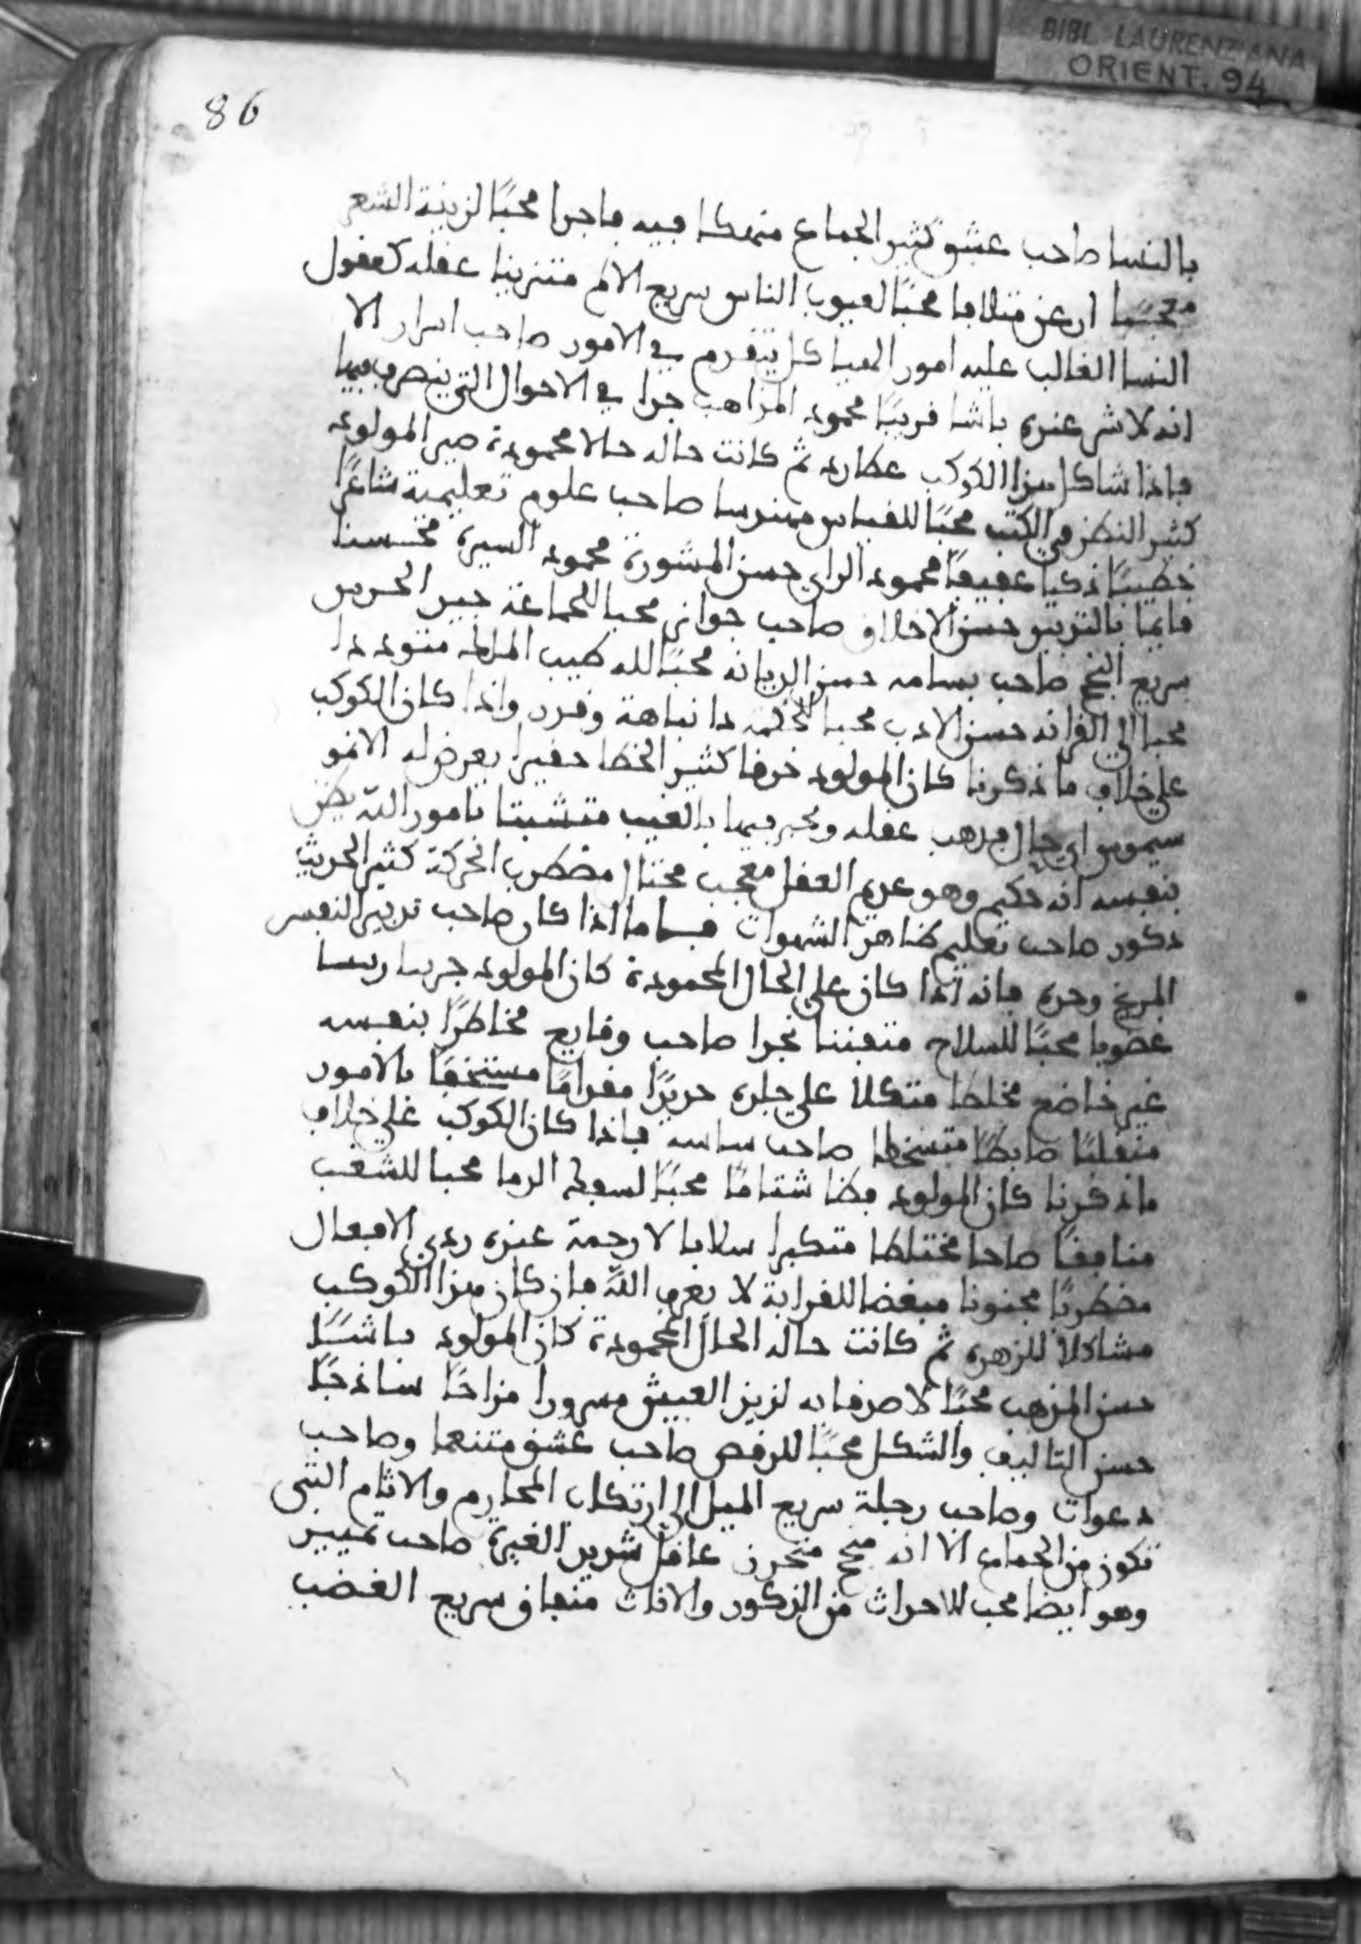 BIBL. LAURENZIANA
ORIENT. 94
86
بالنسا صاحب عشق كثير الجماع منهمكا فيه فاجرا محبا لزينة الشعر
ارعن متلافا محبًا لعيوب الناس سريع الالم متزينا عقله كعقول
النسا الغالب عليه امور الحيا كل يتقدم في الامور صاحب اسرار الا
انه لا شر عنده باشا قريبًا محمود المذاهب جدا في الاحوال التي يتصرف فيها
فاذا شاكل هذا الكوكب عطارد ثم كانت حاله حالا محمودة صير المولود
كثير النظر في الكتب محبًا للقياس مهندسا صاحب علوم تعليمية شاعرًا
خطيبًا ذكيا عفيفًا محمود الراي حسن المشورة محمود السيرة
قايما بالتزين حسن الاخلاق صاحب جوايز محبا للجماعة جيد الحدس
سريع النجح صاحب حسن الديانة محبًا لله طيب متودد
محبا الى القرابة حسن الادب محبا للحكمة ذا نباهة وقدر واذا كان الكوكب
على خلاف ما ذكرنا كان المولود خرفا كثير الخطا حقيرا يعرض له
اي حال مذهب عقله ويخبر فيها بالغيب متشبتا بامور الله يظن
بنفسه انه حكيم وهو عديم العقل معجب محتال مضطرب الحركة كثير الحديث
ذكور صاحب تعليم ظاهر الشهوات فاما اذا كان صاحب تدبير النفس
المريخ وحده فانه اذا كان على الحال المحمودة كان المولود جريا ريسا
غضوبا محبًا للسلاح متفننا نجدا صاحب وقايع مخاطرًا بنفسه
غير خاضع مخلطا متكلا على جلده حريزًا مقدامًا مستخفًا بالامور
متقلبًا ضابطًا متسخطا صاحب فاذا كان الكوكب على خلاف
ما ذكرنا كان المولود فظا شتامًا محبًا لسفك الدما محبا للشغب
منافقًا صاحا مختلطا متكبرا سلابا لا رحمة عنده ردي الافعال
مضطربًا مجنونا مبغضا للقرابة لا يعرف الله فان كان هذا الكوكب
مشاكلا للزهرة ثم كانت حاله الحال المحمودة كان المولود باشًا
حسن المذهب محبًا لاصدقايه لذيذ العيش مسرورا مزاحًا ساذجًا
حسن التاليف والشكل محبًا للرقص صاحب عشق متنعما وصاحب
دعوات وصاحب رجلة سريع الميل الى ارتكاب المحارم والاثام التي
تكون من الجماع الا انه منجح متحرز عاقل شديد الغيرة صاحب تمييز
وهو ايضا محب للاحداث من الذكور والاناث متفاق سريع الغضب